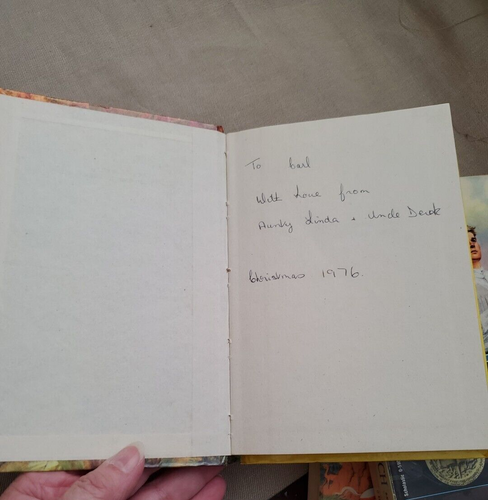 To Carl
With Love from
Aunty Linda + Uncle Derek
Christmas 1976.